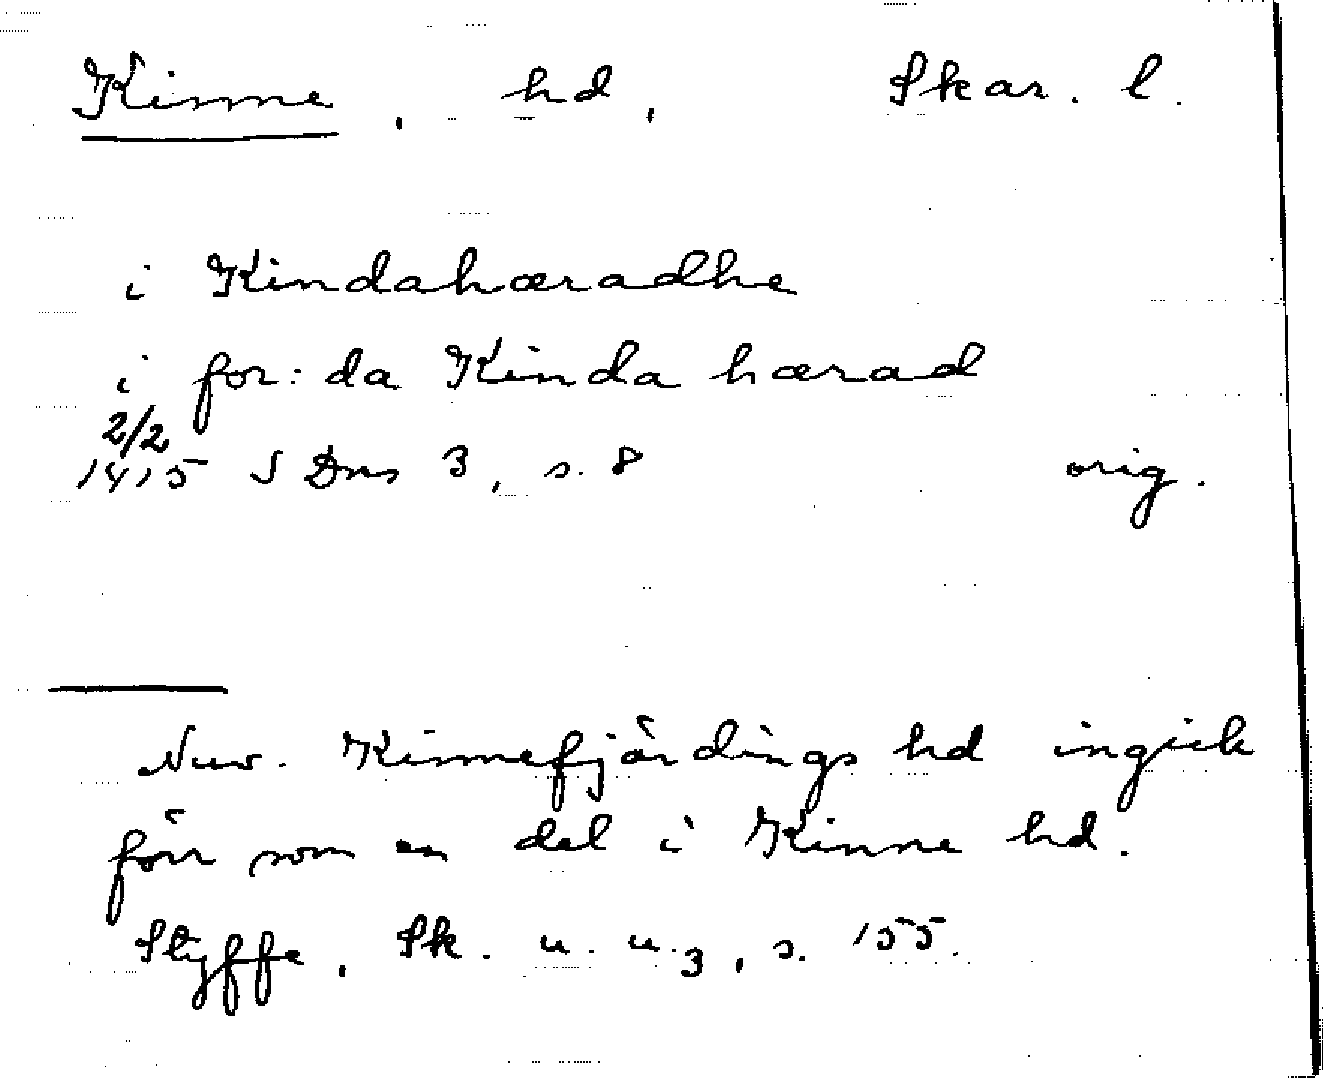 Kinne, hd, Skar. l.
i Kindahæradhe
i for: da Kinda hærad
2/2
1415 S Dns 3, s. 8 orig.
Nuv. Kinnefjärdings hd ingick
förr som en del i Kinne hd.
Styffe, Sk. u. u. 3, s. 155.